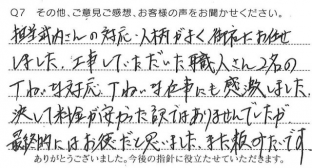 Q7 その他、ご意見ご感想、お客様の声をお聞かせください。
担当武内さんの対応・人柄がよく御社にお任せ
しました。工事していただいた職人さん2名の
丁ねいな対応、丁ねいな仕事にも感激しました。
決して料金が安かった訳ではありませんでしたが
最終的にはお得だと思いました。また頼みたいです。
ありがとうございました。今後の指針に役立たせていただきます。